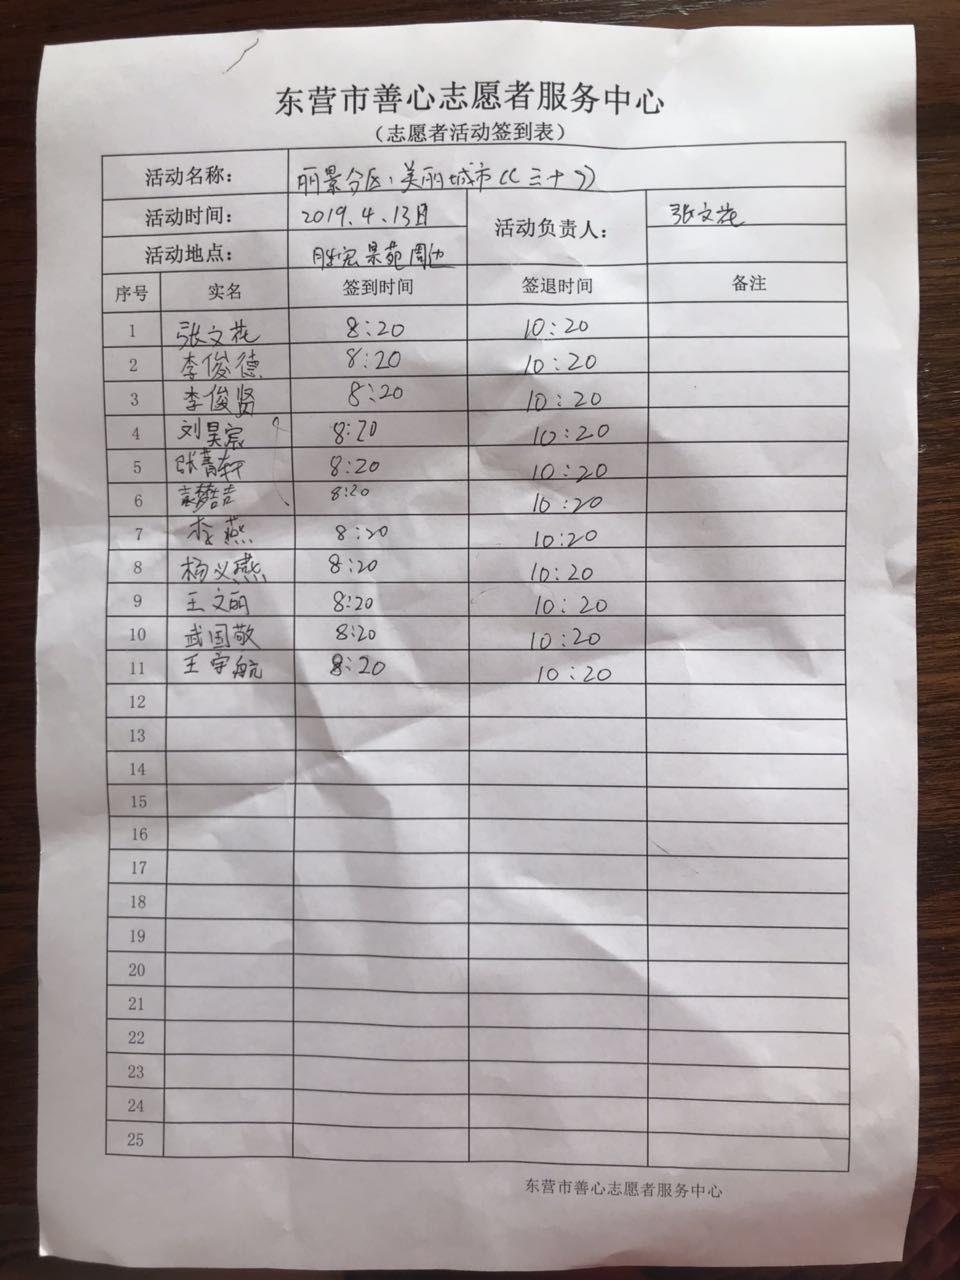 东营市善心志愿者服务中心
(志愿者活动签到表)
活动名称: 丽景分区·美丽城市((三十))
活动时间: 2019.4.13日 活动负责人: 张文花
活动地点: 胜宏景苑周边
序号 实名 签到时间 签退时间 备注
1 张文花 8:20 10:20
2 李俊德 8:20 10:20
3 李俊贤 8:20 10:20
4 刘昊宸 8:20 10:20
5 张菁轩 8:20 10:20
6 8:20 10:20
7 李燕 8:20 10:20
8 杨义燕 8:20 10:20
9 王文丽 8:20 10:20
10 武国敬 8:20 10:20
11 王宇航 8:20 10:20
12
13
14
15
16
17
18
19
20
21
22
23
24
25
东营市善心志愿者服务中心